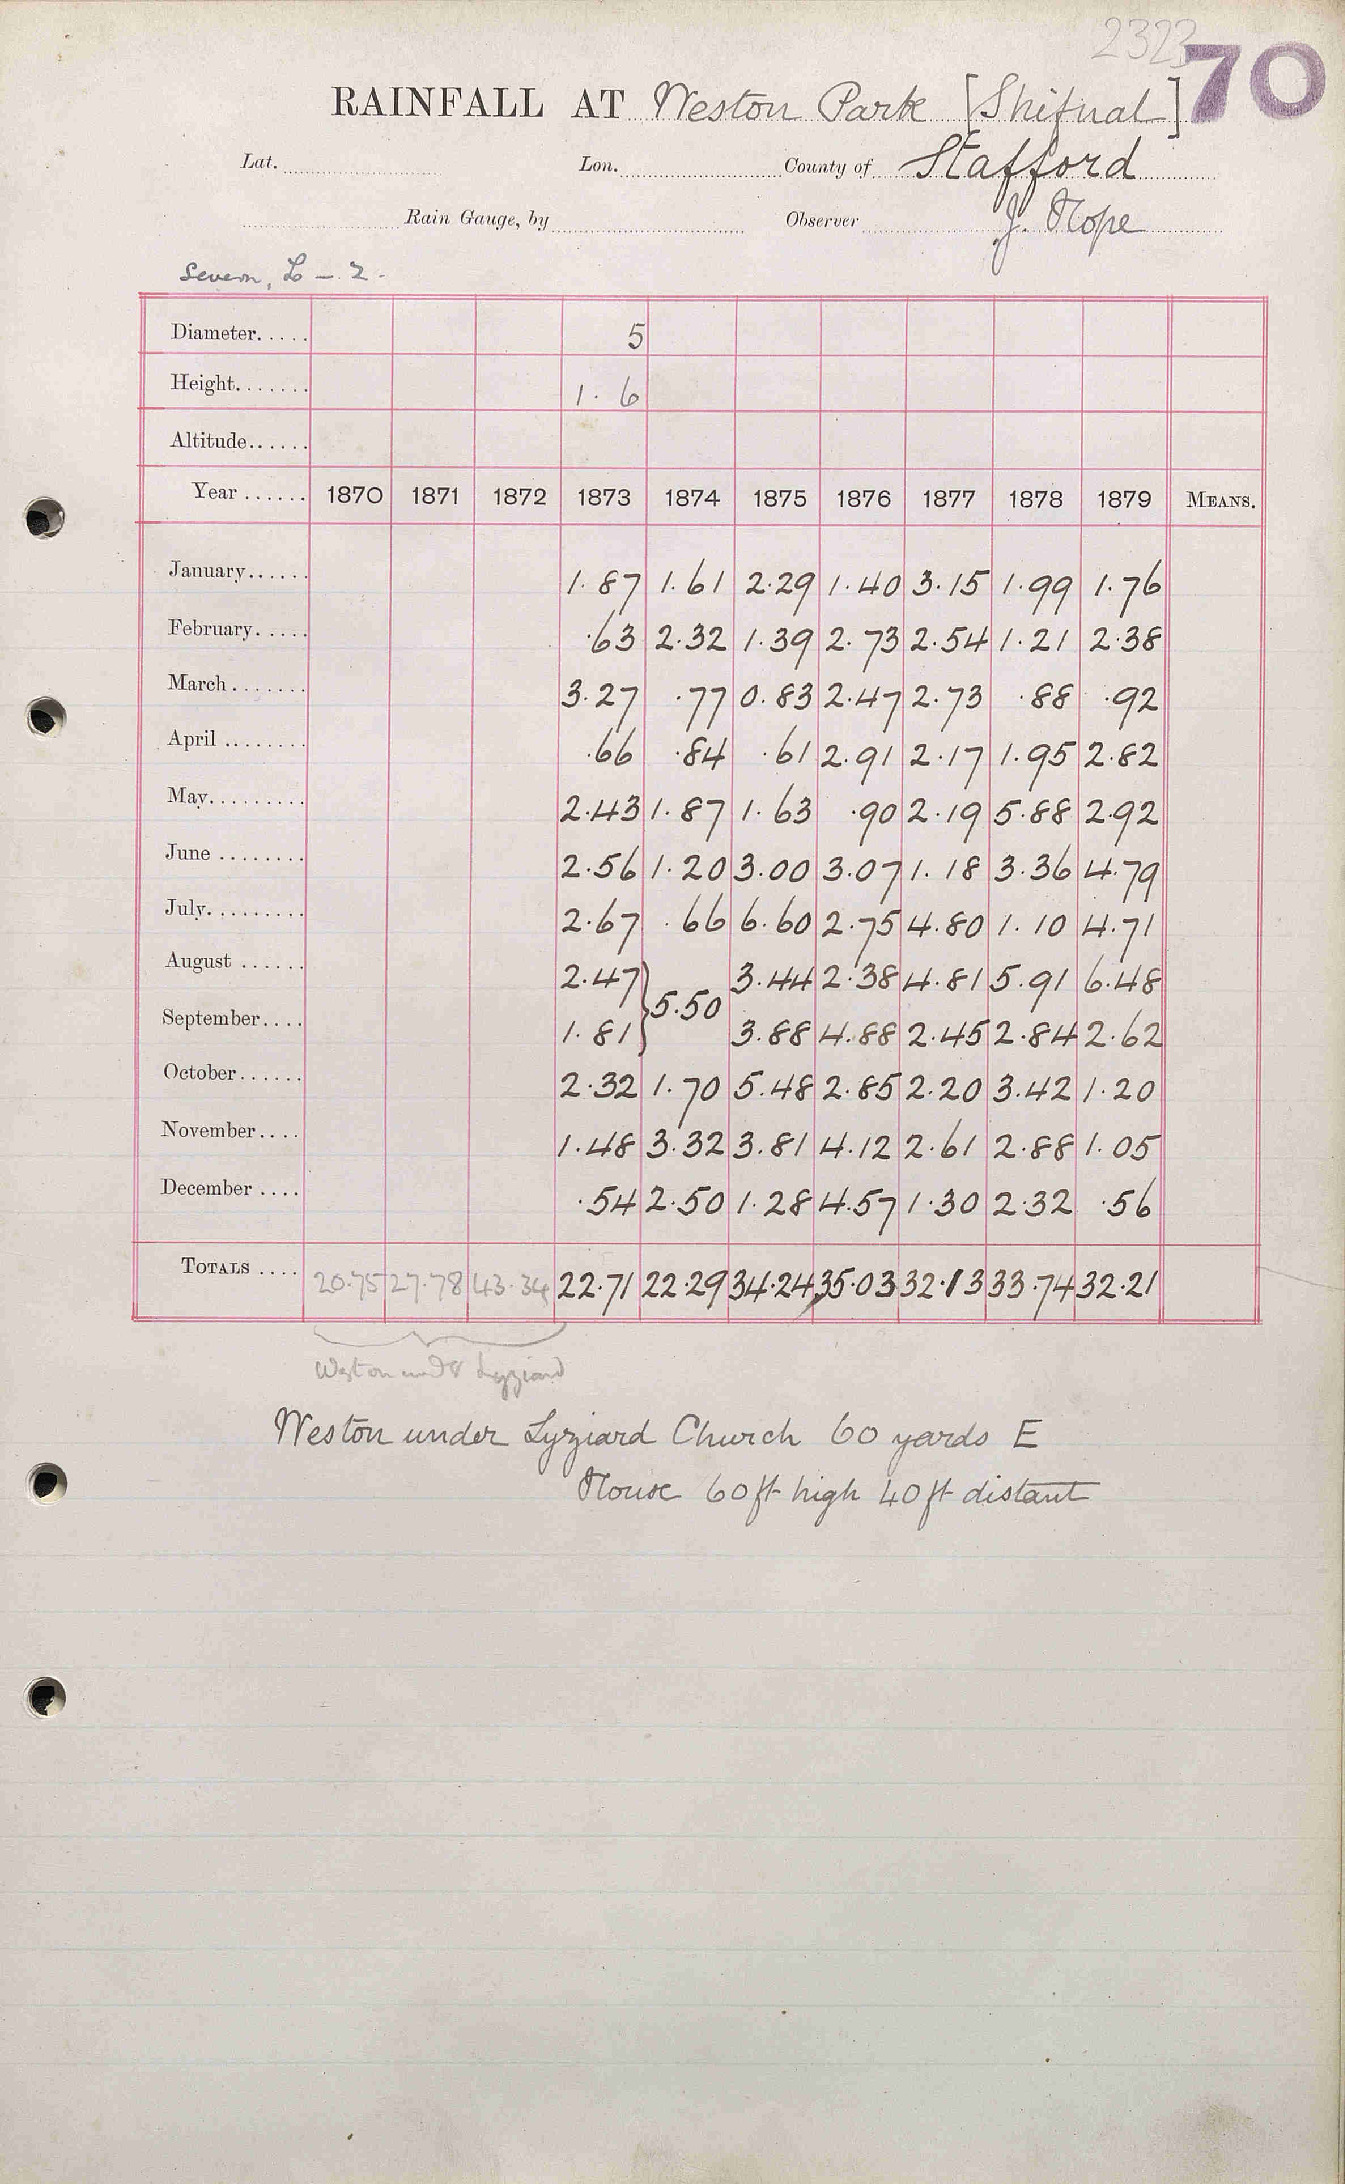 2323 70
RAINFALL AT Weston Park [Shifnal]
Lat. Lon. County of Stafford
Rain Gauge, by Observer J. Hope
Severn, L — 2.
Diameter..... 5
Height....... 1. 6
Altitude......
Year ...... 1870 1871 1872 1873 1874 1875 1876 1877 1878 1879 MEANS.
January...... 1.87 1.61 2.29 1.40 3.15 1.99 1.76
February..... .63 2.32 1.39 2.73 2.54 1.21 2.38
March ....... 3.27 .77 0.83 2.47 2.73 .88 .92
April ........ .66 .84 .61 2.91 2.17 1.95 2.82
May......... 2.43 1.87 1.63 .90 2.19 5.88 2.92
June ........ 2.56 1.20 3.00 3.07 1.18 3.36 4.79
July......... 2.67 .66 6.60 2.75 4.80 1.10 4.71
August ...... 2.47 } 5.50 3.44 2.38 4.81 5.91 6.48
September.... 1.81 3.88 4.88 2.45 2.84 2.62
October...... 2.32 1.70 5.48 2.85 2.20 3.42 1.20
November.... 1.48 3.32 3.81 4.12 2.61 2.88 1.05
December .... .54 2.50 1.28 4.57 1.30 2.32 .56
TOTALS .... 20.75 27.78 43.34 22.71 22.29 34.24 35.03 32.13 33.74 32.21
Weston under Lyziard
Weston under Lyziard Church 60 yards E
House 60 ft high 40 ft distant